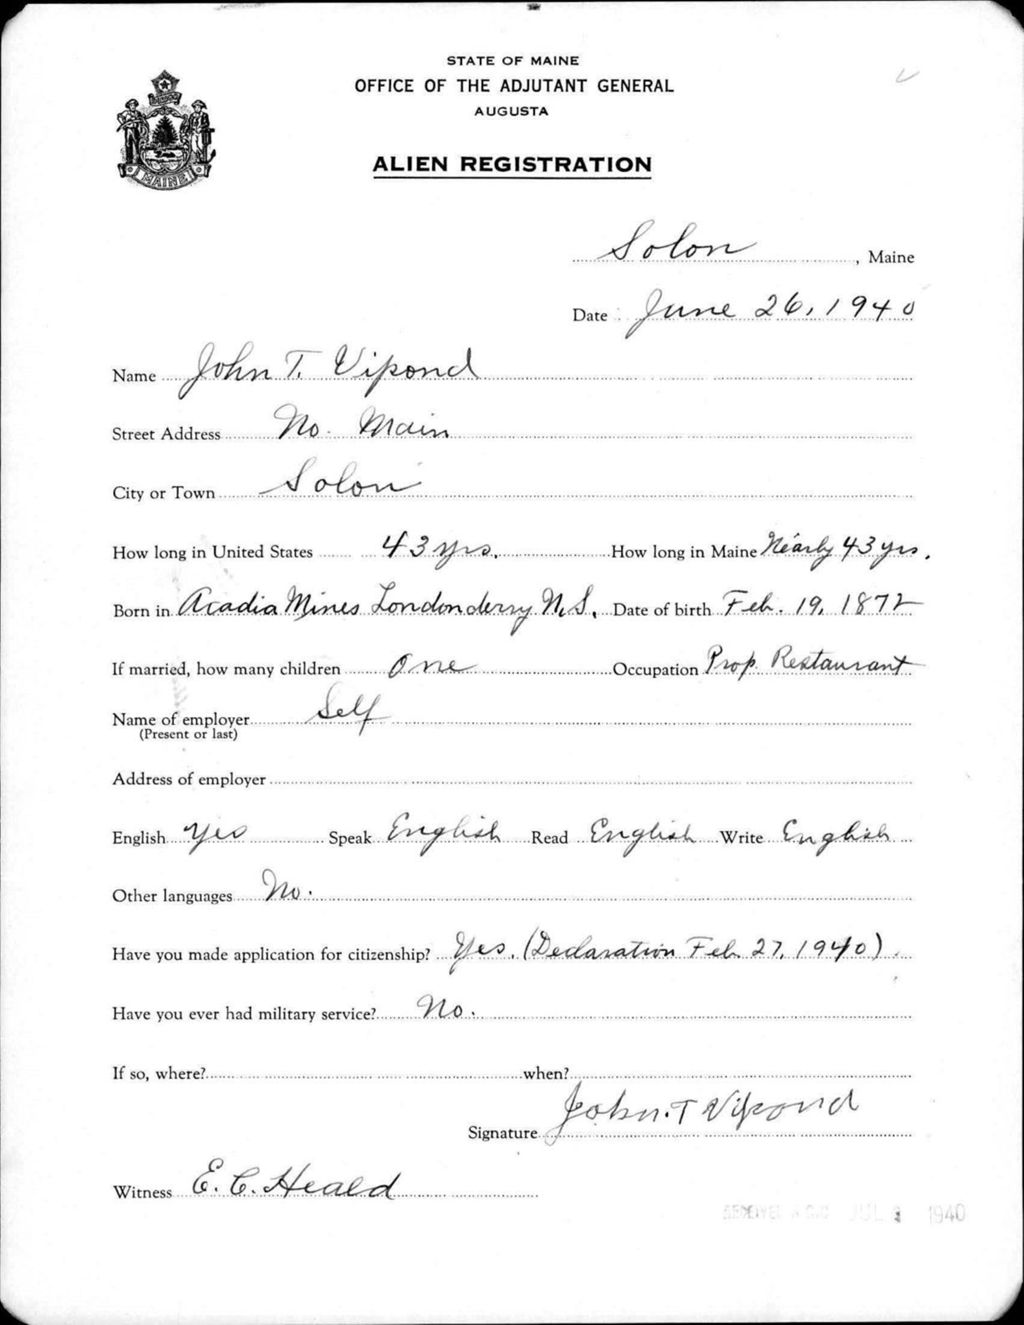 STATE OF MAINE
OFFICE OF THE ADJUTANT GENERAL
AUGUSTA
MAINE
ALIEN REGISTRATION
Solon, Maine
Date June 26, 1940
Name John T. Vipond
Street Address No. Main
City or Town Solon
How long in United States 43 yrs. How long in Maine Nearly 43 yrs.
Born in Acadia Mines Londonderry N.S. Date of birth Feb. 19, 1872
If married, how many children One Occupation Prop. Restaurant
Name of employer Self
(Present or last)
Address of employer
English Yes Speak English Read English Write English
Other languages No.
Have you made application for citizenship? Yes. (Declaration Feb. 27, 1940).
Have you ever had military service? No.
If so, where? when?
Signature John. T Vipond
Witness E. C. Heald
JUL 1940